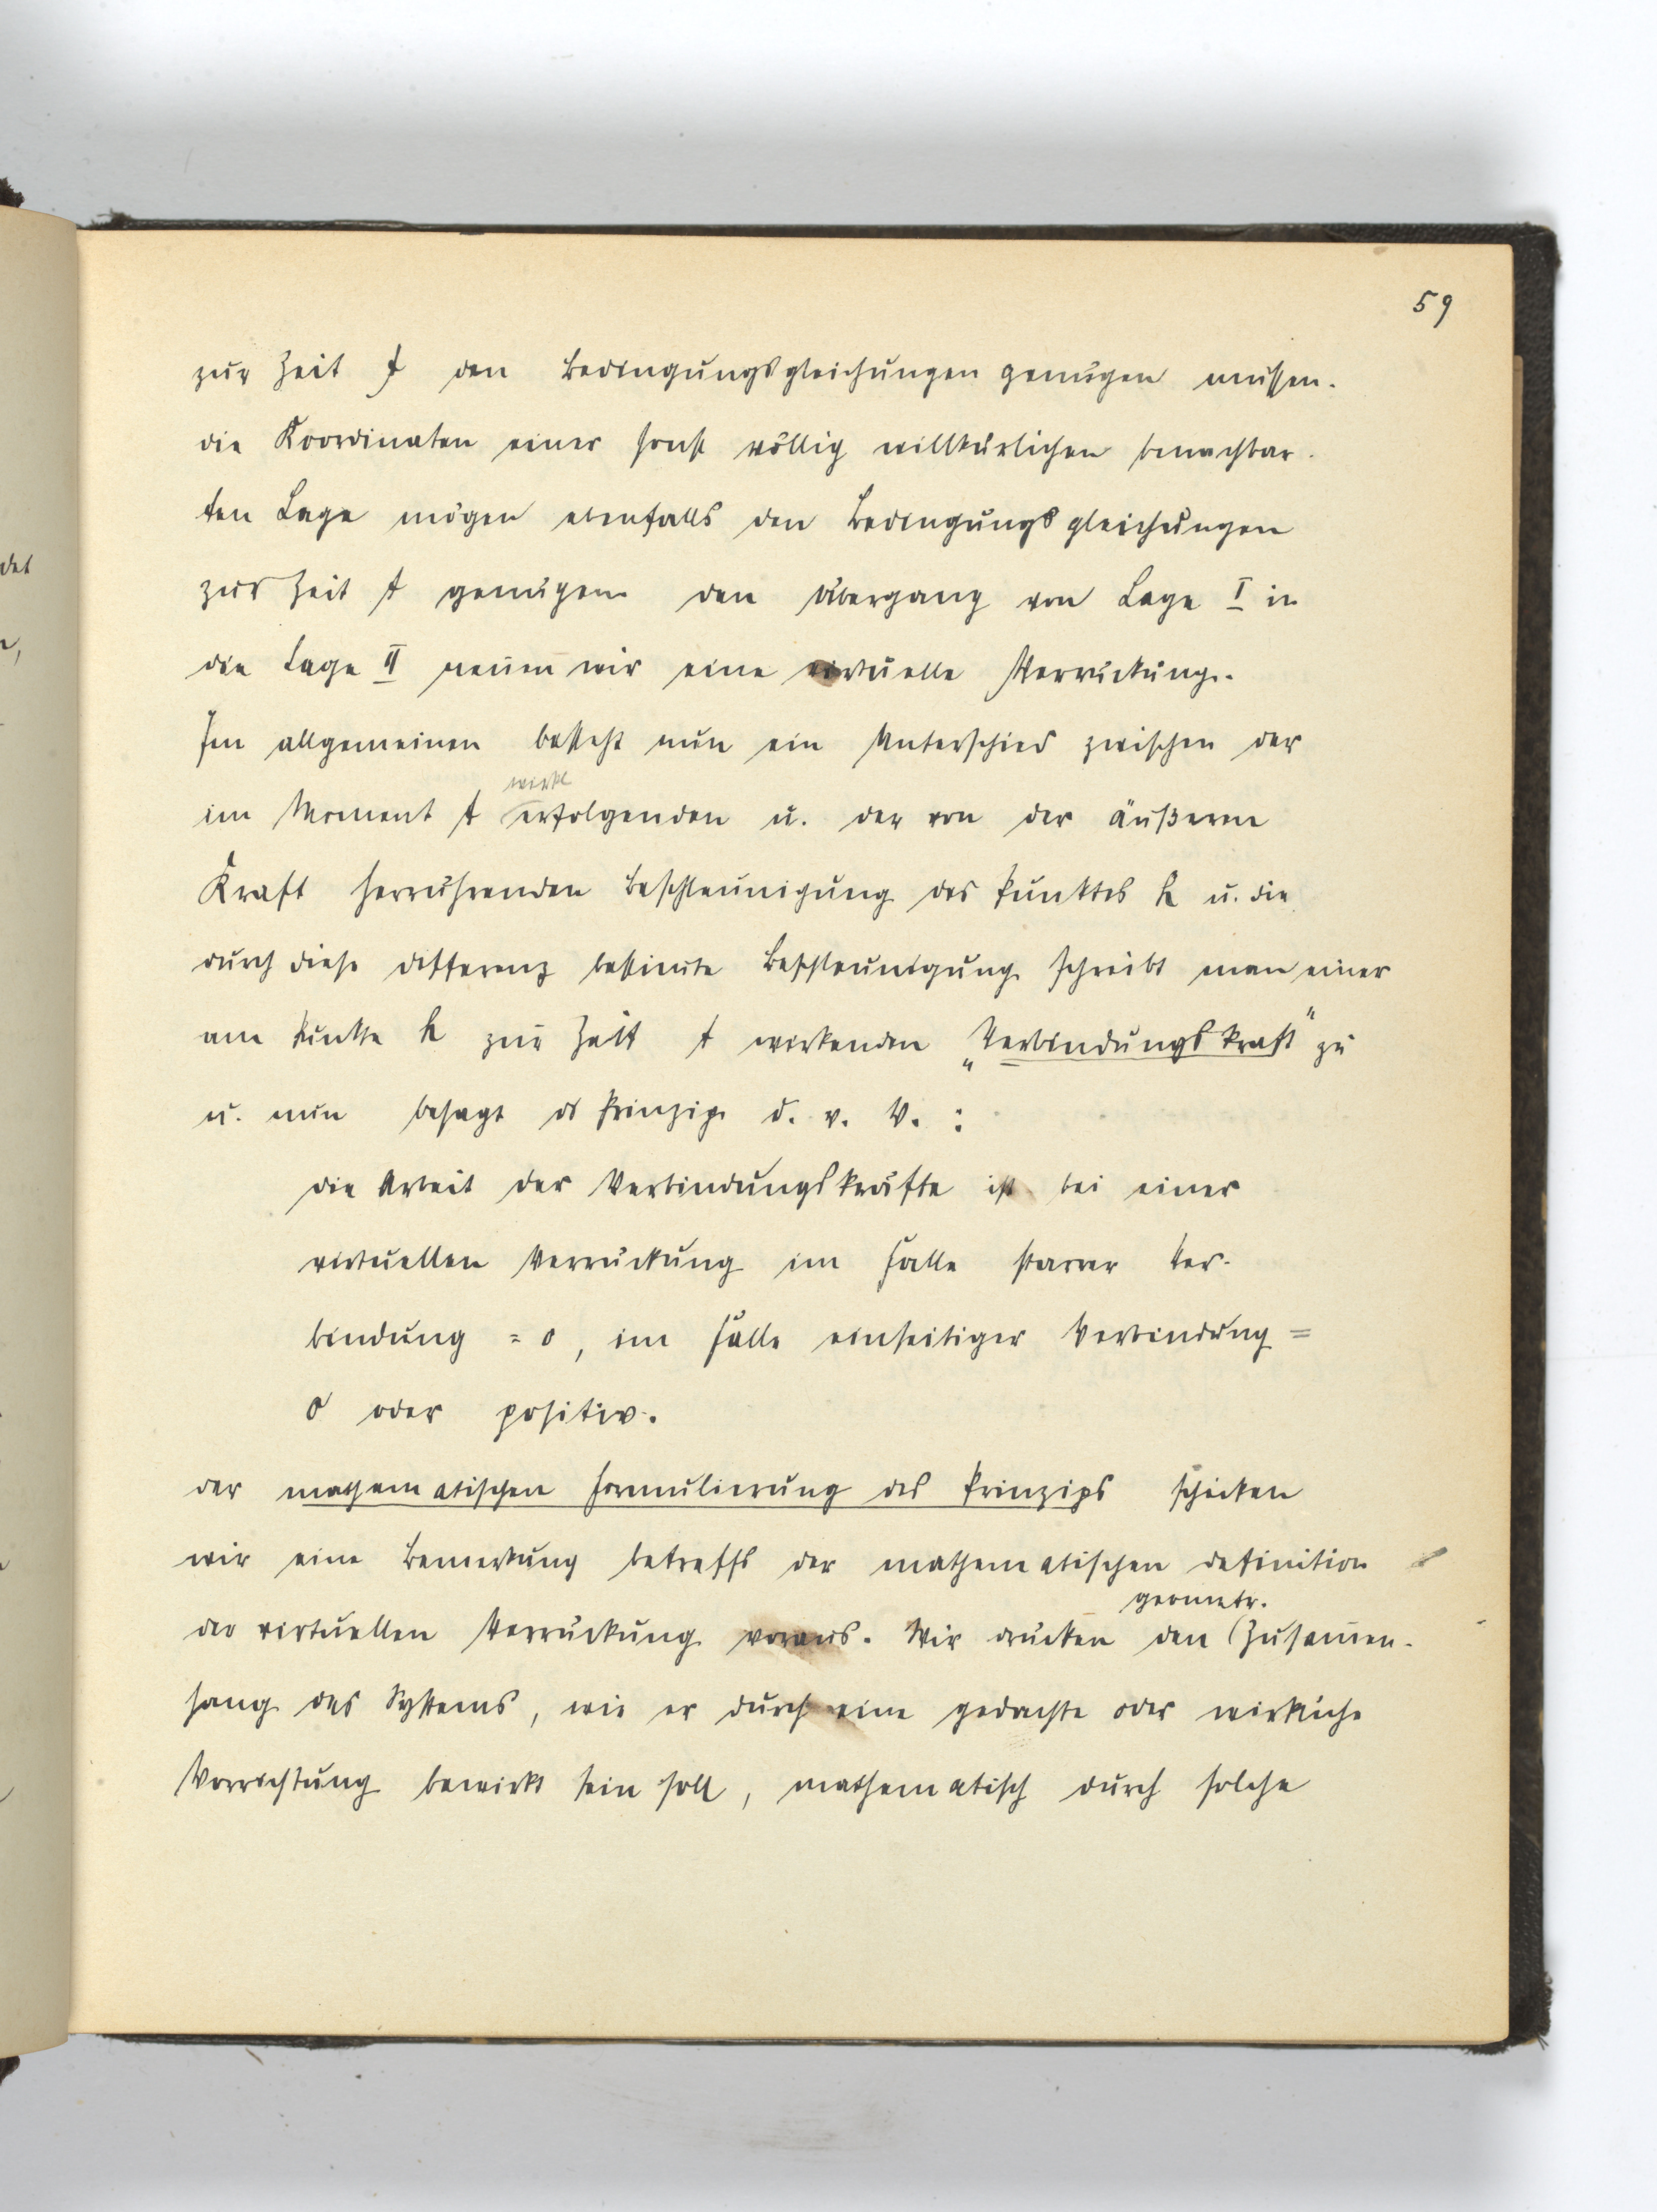 59
zur Zeit t den Bedingungsgleichungen genügen müssen.
die Koordinaten einer sonst völlig willkürlichen benachbar-
ten Lage mögen ebenfalls den Bedingungsgleichungen
zur Zeit t genügen den Übergang von Lage I in
die Lage II nenn̄en wir eine virtuelle Verrückung.
Im allgemeinen besteht nun ein Unterschied zwischen der
wirkl
im Moment t erfolgenden u. der von der äußeren
Kraft herrührenden Beschleunigung des Punktes h u. die
durch diese Differenz bestim̄te Beschleunigung schreibt man einer
am Punkte h zur Zeit t wirkenden „Verbindungskraft" zu
u. nun besagt ds Prinzip d. v. V. :
die Arbeit der Verbindungskräfte ist bei einer
virtuellen Verrückung im Falle starrer Ver-
bindung = 0, im Falle einseitiger Verbindung =
0 oder positiv.
der mathematischen Formulierung des Prinzips schicken
wir eine Bemerkung betreffs der mathematischen Definition
geometr.
der virtuellen Verrückung voraus. Wir drücken den (Zusam̄en-
hang des Systems, wie er durch eine gedachte oder wirkliche
Vorrichtung bewirkt sein soll, mathematisch durch solche